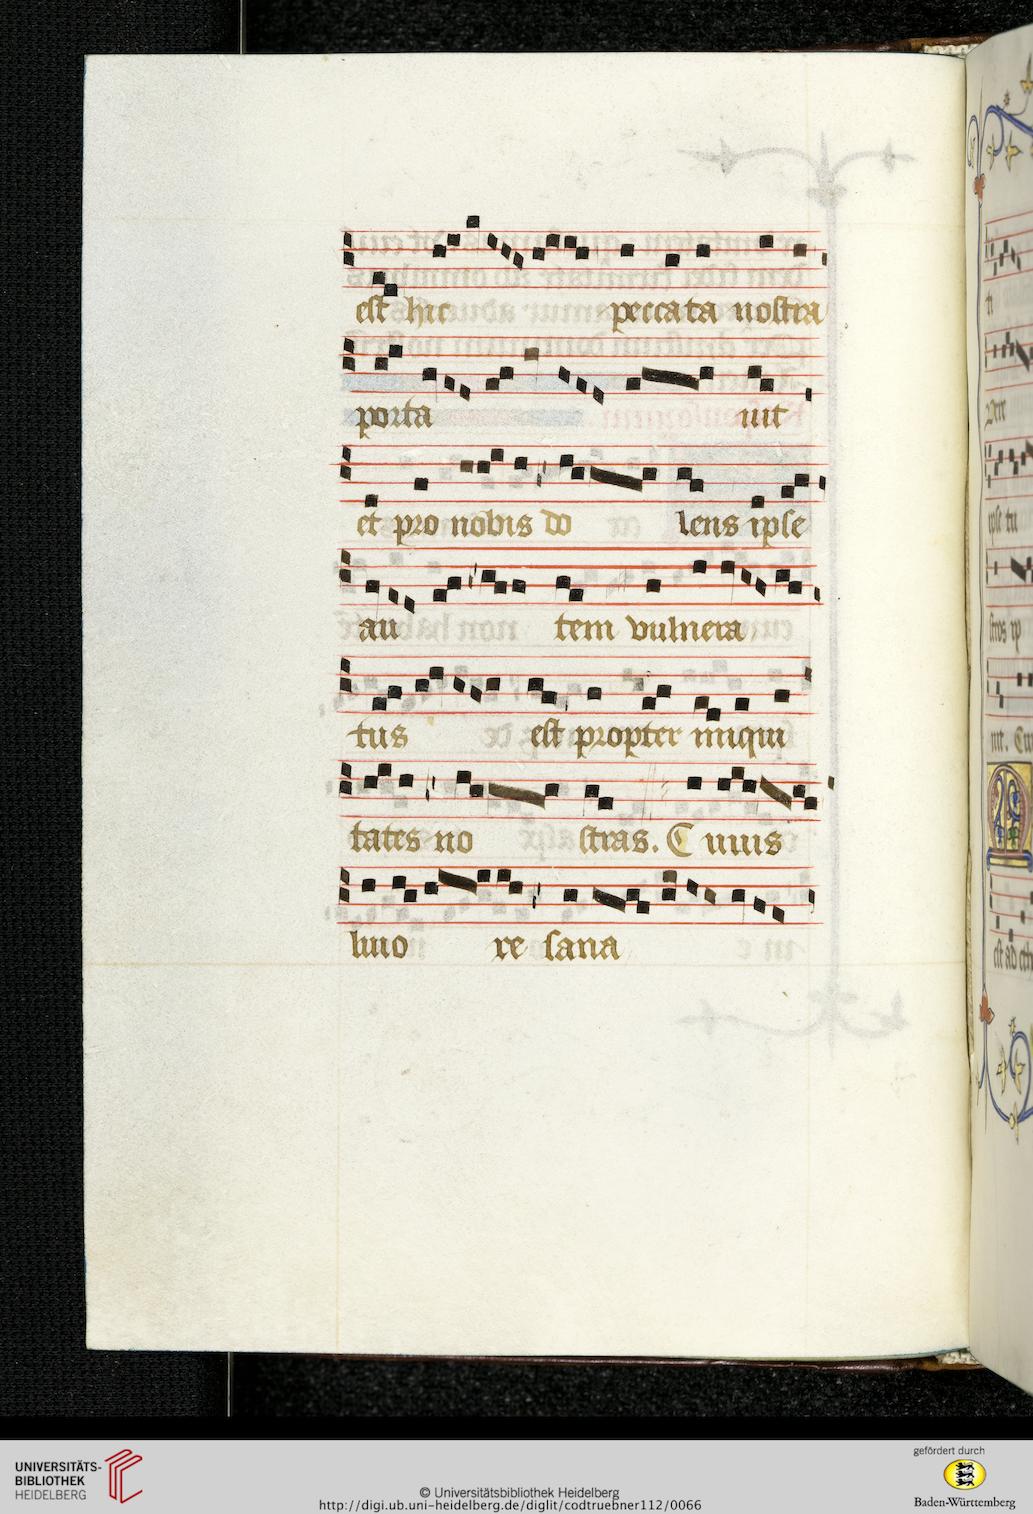 est hic peccata nostra
porta uit
et pro nobis do lens ipse
au tem vulnera
tus est propter iniqui
tates no stras. Cuius
liuo re sana
ti
ipse tu
stros ip
est ad
UNIVERSITÄTS-
BIBLIOTHEK
HEIDELBERG
© Universitätsbibliothek Heidelberg
http://digi.ub.uni-heidelberg.de/diglit/codtruebner112/0066
gefördert durch
Baden-Württemberg